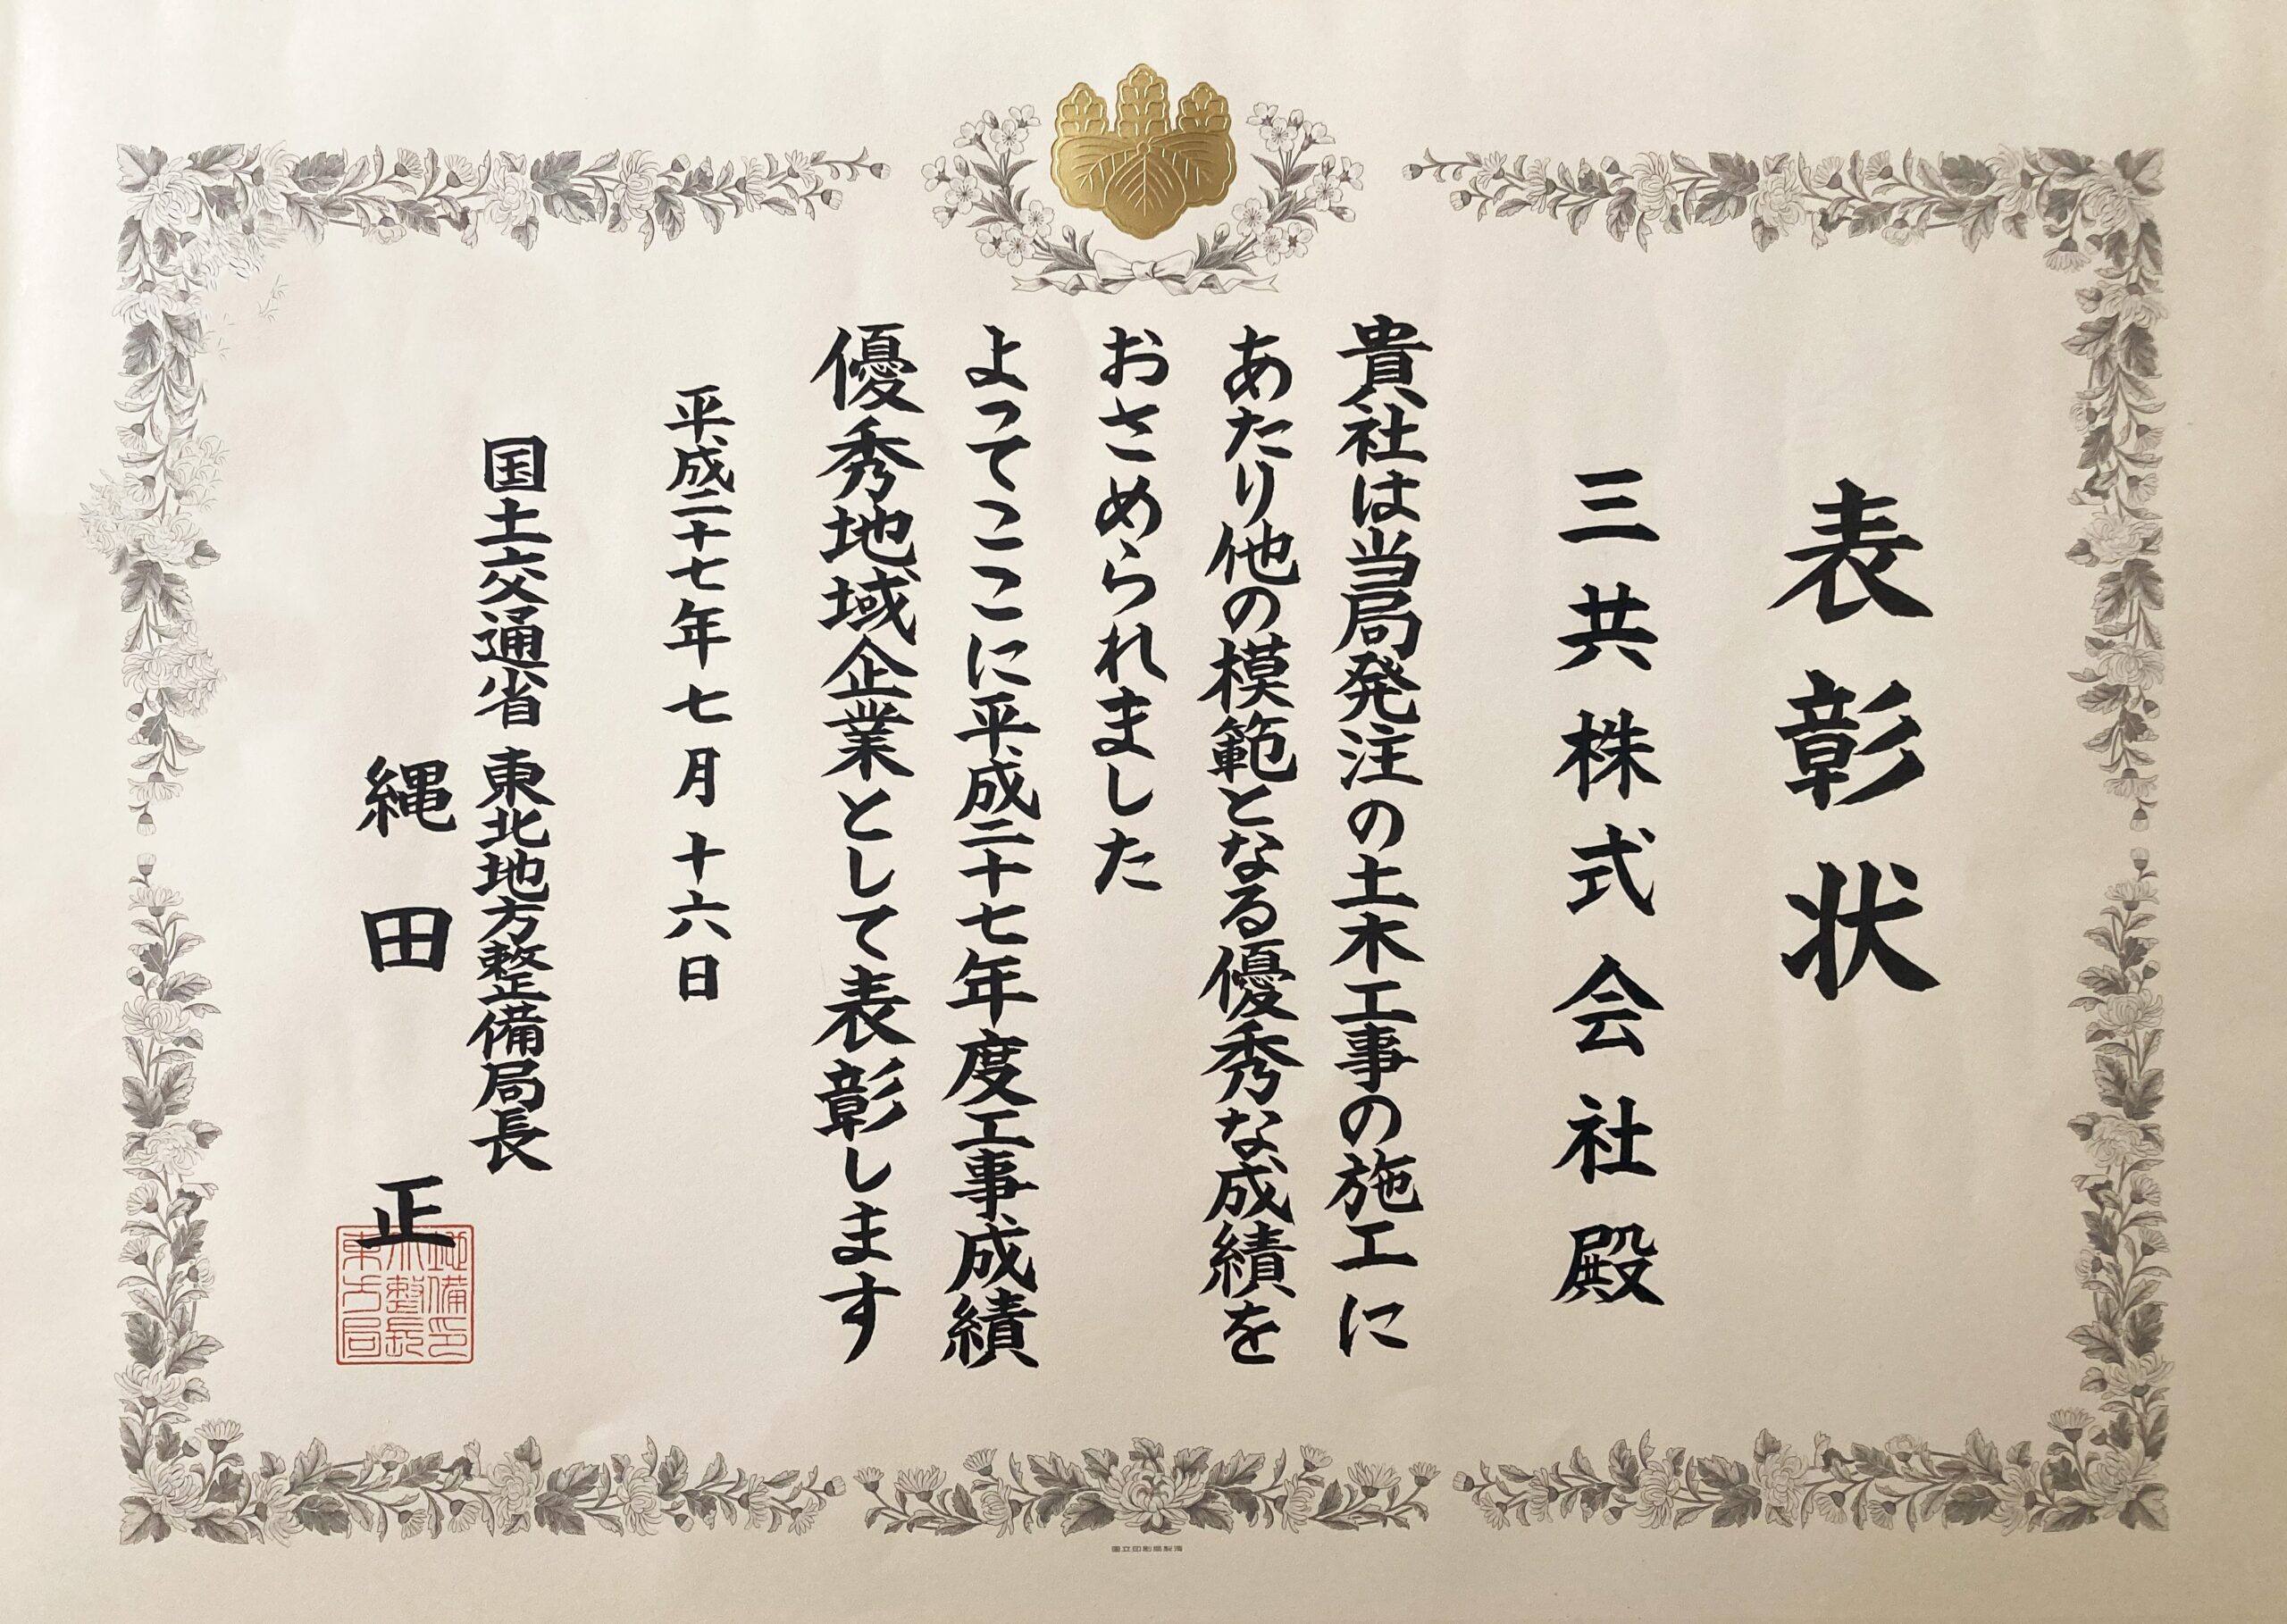 表彰状
三共株式会社殿
貴社は当局発注の土木工事の施工に
あたり他の模範となる優秀な成績を
おさめられました
よってここに平成二十七年度工事成績
優秀地域企業として表彰します
平成二十七年七月十六日
国土交通省東北地方整備局長
縄田正